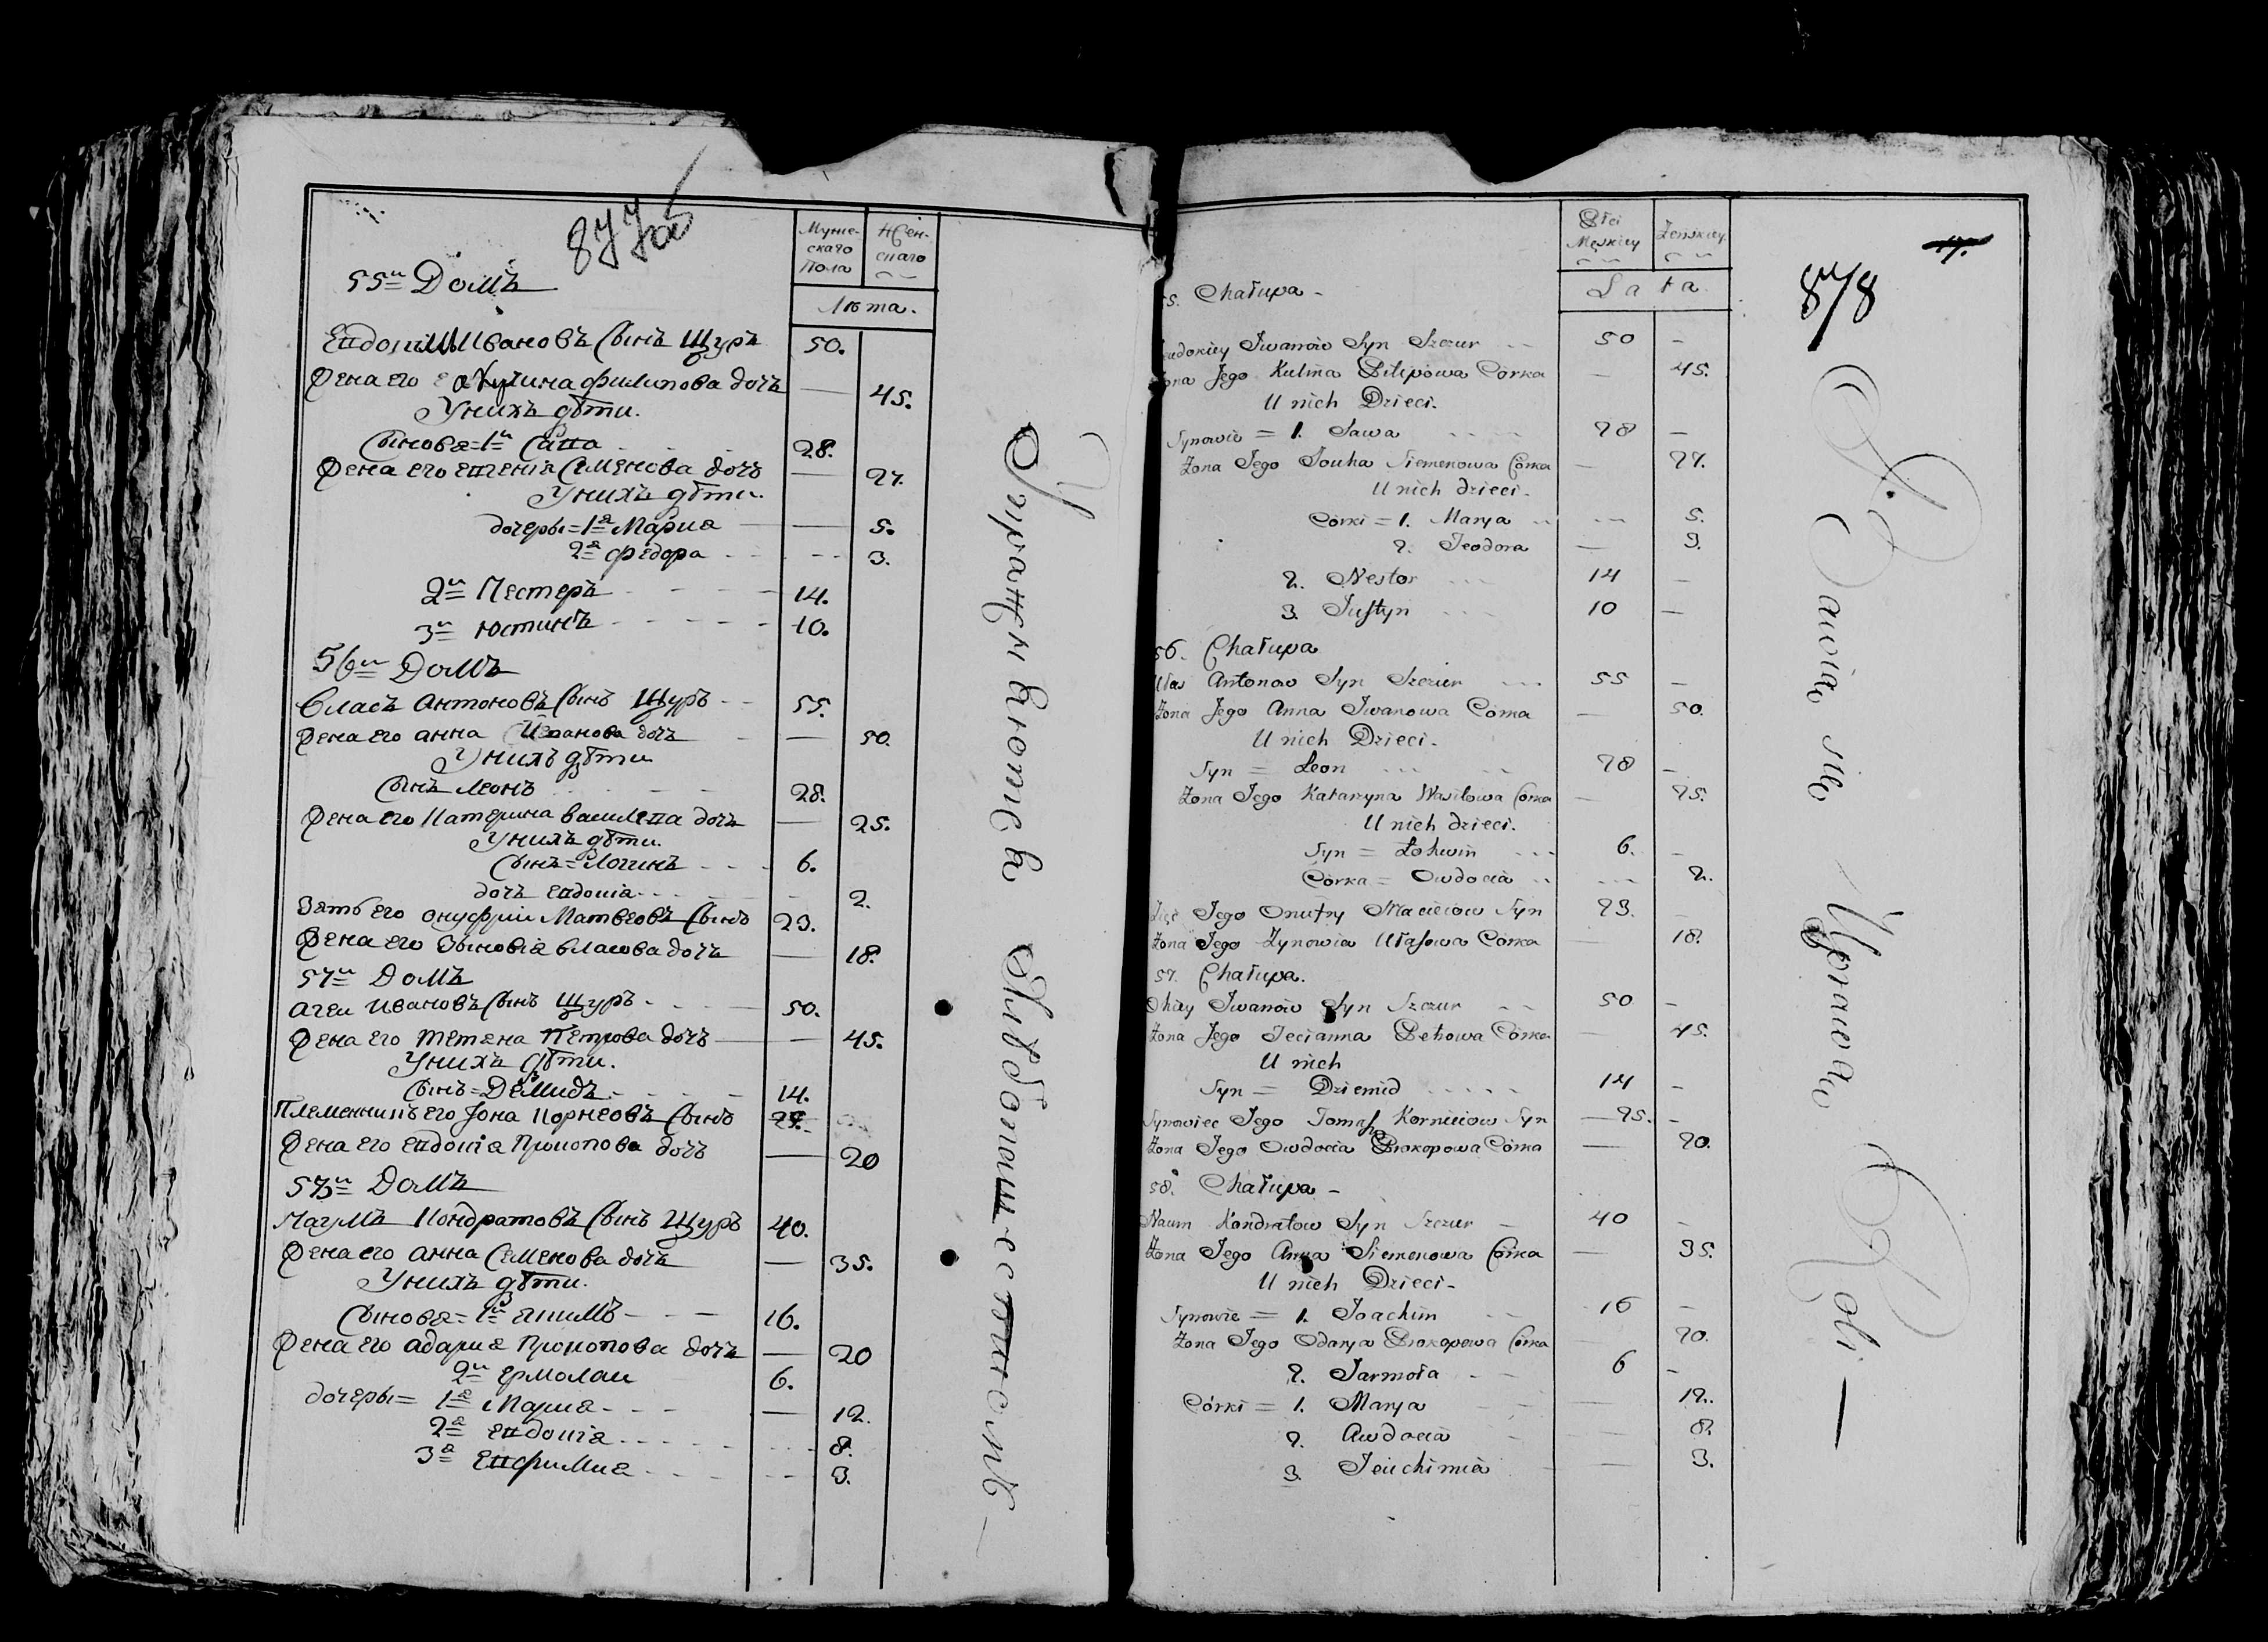 877 об
Муже-
скаго
Пола
Жен-
скаго
Лѣта.
55й Домъ
Евдокимъ Ивановъ сынъ Щуръ 50.
Жена его акулина филипова дочь — 45.
У нихъ дѣти.
Сыновя = 1й Савва 28.
Жена его евгенія Семенова дочь — 27.
У нихъ дѣти.
дочеры = 1я Мария — 5.
2я федора 3.
2й Нестеръ 14.
3й Юстинъ 10.
56й Домъ
Власъ антоновъ сынъ Щуръ 55.
Жена его анна Иванова дочь — 50.
У нихъ дѣти
Сынъ Леонъ 28.
Жена его Катерина василева дочь — 25.
У нихъ дѣти.
Сынъ = Логинъ 6.
дочь Евдокіа 2.
Зять его онуфрій Матвеовъ сынъ 23.
Жена его Зѣновія власова дочь — 18.
57й Домъ
агеи Ивановъ сынъ Щуръ 50.
Жена его тетяна Петрова дочь — 45.
У нихъ дѣти.
Сынъ = Демидъ 14.
Племенникъ его Іона Корнеовъ сынъ
Жена его евдокіа Прокопова дочь — 20
58й Домъ
Наумъ Кондратовъ сынъ Щуръ 40.
Жена его анна Семенова дочь — 35.
У нихъ дѣти.
Сыновя = 1й якимъ 16.
Жена его адария Прокопова дочь — 20
2й ермолаи 6.
дочеры = 1я Мария — 12.
2я евдокіа 8.
3я евфимиа 3.
Płci
Męskiey
Żenskiey
Lata
878
55. Chałupa -
Jewdokiey Iwanów Syn Szczur 50 -
Żona Jego Kulina Pilipowa Córka - 45.
U nich Dzieci.
Synowie = 1. Sawa 28 -
Żona Jego Jouha Siemenowa Córka - 27.
U nich dzieci.
Córki = 1. Marya 5.
2. Teodora - 3.
2. Nestor 14 -
3. Justyn 10 -
56. Chałupa
Ułas Antonow Syn Szczur 55 -
Żona Jego Anna Iwanowa Córka - 50.
U nich Dzieci.
Syn = Leon 28 -
Żona Jego Katarzyna Wasilowa Córka - 25.
U nich dzieci.
Syn = Łohwin 6. -
Córka = Owdocia 2.
Zięć Jego Onufry Macieiow Syn 23.
Żona Jego Zynowia Ułasowa Córka 18.
57. Chałupa.
Ohiey Iwanów Syn Szczur 50 -
Żona Jego Tecianna Petrowa Córka - 45.
U nich
Syn = Dziemid 14 -
Synowiec Jego Tomasz Korniiow Syn - 25. -
Żona Jego Owdocia Prokopowa Córka - 20.
58. Chałupa -
Naum Kondratow Syn Szczur - 40 -
Żona Jego Anna Siemenowa Córka - 35.
U nich Dzieci -
Synowie = 1. Joachim 16 -
Żona Jego Odarya Prokopowa Córka 20.
2. Jarmoła 6 -
Córki = 1. Marya 12.
2. Awdocia 8.
3. Jeuchimia - 3.